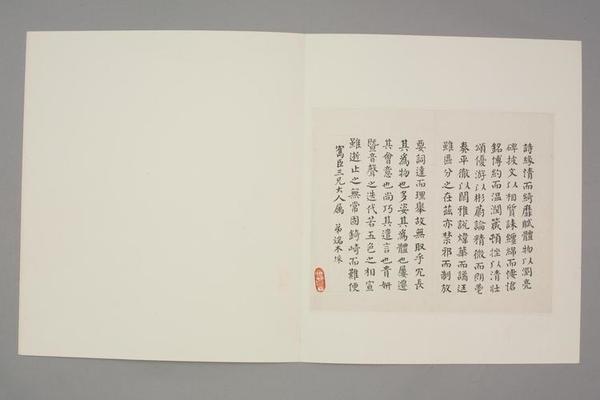 詩緣情而綺靡賦體物以瀏亮
碑披文以相質誄纏綿而悽愴
銘博約而温潤箴頓挫以清壯
頌優游以彬蔚論精微而朗鬯
奏平徹以閑雅說煒華而譎
雖區分之在茲亦禁邪而制放
要詞達而理舉故無取乎冗長
其爲物也多姿其爲體也屢遷
其會意也尚巧其遣言也貴妍
暨音聲之迭代若五色之相宣
雖逝止之無常固錡崎而難便
臣三兄大人屬 弟端木埰